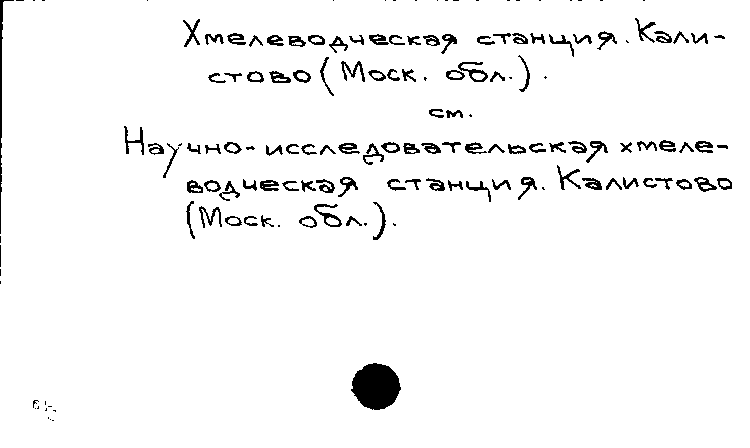 Хмелеводческая станция. Кали-
стово (Моск. обл.).
см.
Научно-исследовательская хмеле-
водческая станция. Калистово
(Моск. обл.).